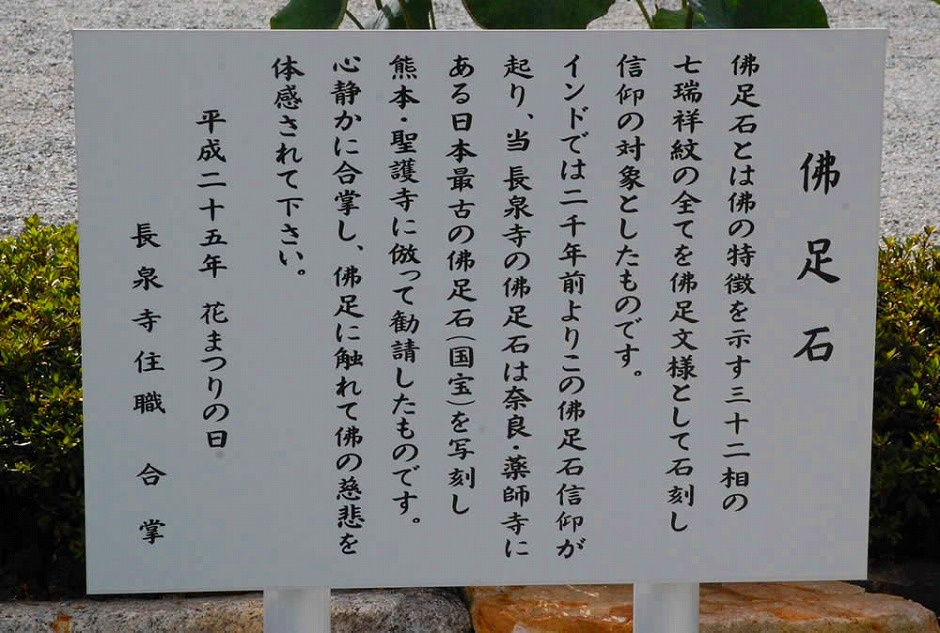 佛足石
佛足石とは佛の特徴を示す三十二相の
七瑞祥紋の全てを佛足文様として石刻し
信仰の対象としたものです。
インドでは二千年前よりこの佛足石信仰が
起り、当 長泉寺の佛足石は奈良・薬師寺に
ある日本最古の佛足石(国宝)を写刻し
熊本・聖護寺に倣って勧請したものです。
心静かに合掌し、佛足に触れて佛の慈悲を
体感されて下さい。
平成二十五年 花まつりの日
長泉寺住職 合掌